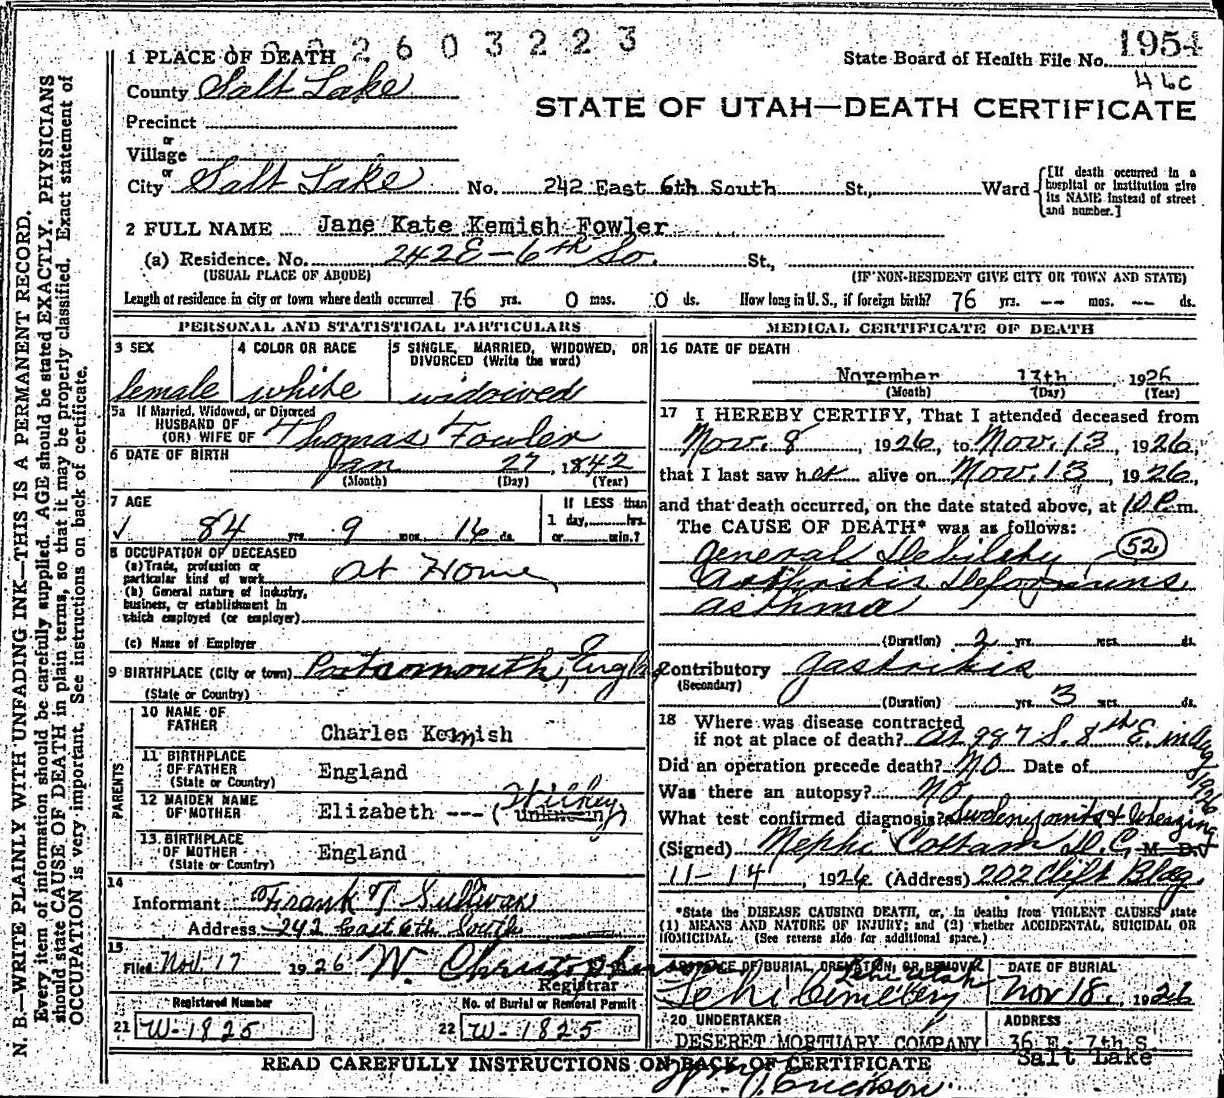 2603223
1954
1 PLACE OF DEATH
State Board of Health File No.
46c
County Salt Lake
STATE OF UTAH—DEATH CERTIFICATE
Precinct
or
Village
or
City Salt Lake No. 242 East 6th South St., Ward
[If death occurred in a hospital or institution give its NAME instead of street and number.]
2 FULL NAME Jane Kate Kemish Fowler
(a) Residence. No. 242 E - 6th So. St.,
(USUAL PLACE OF ABODE) (IF NON-RESIDENT GIVE CITY OR TOWN AND STATE)
Length of residence in city or town where death occurred 76 yrs. 0 mos. 0 ds. How long in U. S., if foreign birth? 76 yrs. -- mos. -- ds.
PERSONAL AND STATISTICAL PARTICULARS
3 SEX
female
4 COLOR OR RACE
white
5 SINGLE, MARRIED, WIDOWED, OR
DIVORCED (Write the word)
widowed
5a If Married, Widowed, or Divorced
HUSBAND OF
(OR) WIFE OF Thomas Fowler
6 DATE OF BIRTH
Jan 27, 1842
(Month) (Day) (Year)
7 AGE
84 yrs. 9 mos. 16 ds.
If LESS than
1 day, hrs.
or min.?
8 OCCUPATION OF DECEASED
(a) Trade, profession or
particular kind of work At Home
(b) General nature of industry,
business, or establishment in
which employed (or employer)
(c) Name of Employer
9 BIRTHPLACE (City or town) Portsmouth, England
(State or Country)
PARENTS
10 NAME OF
FATHER Charles Kemish
11 BIRTHPLACE
OF FATHER England
(State or Country)
12 MAIDEN NAME
OF MOTHER Elizabeth --- (unknown)
13 BIRTHPLACE
OF MOTHER England
(State or Country)
14
Informant Frank T Sullivan
Address 242 East 6th South
15
Filed Nov. 17 1926 W. Christopherson
Registrar
Registered Number
21 W-1825
No. of Burial or Removal Permit
22 W-1825
MEDICAL CERTIFICATE OF DEATH
16 DATE OF DEATH
November 13th 1926
(Month) (Day) (Year)
17 I HEREBY CERTIFY, That I attended deceased from
Nov. 8, 1926, to Nov. 13, 1926,
that I last saw her alive on Nov. 13, 1926,
and that death occurred, on the date stated above, at 10 P. m.
The CAUSE OF DEATH* was as follows:
General Debility (52)
Arthritis Deformans
Asthma
(Duration) 2 yrs. mos. ds.
Contributory Gastritis
(Secondary)
(Duration) yrs. 3 mos. ds.
18 Where was disease contracted
if not at place of death? At 997 S. 8th E. in Aug 1926
Did an operation precede death? No Date of
Was there an autopsy? No
What test confirmed diagnosis? Swollen joints & Wheezing
(Signed) Nephi Cottam D. C. M. D.
11-14, 1926 (Address) 202 Clift Bldg.
*State the DISEASE CAUSING DEATH, or, in deaths from VIOLENT CAUSES state
(1) MEANS AND NATURE OF INJURY; and (2) whether ACCIDENTAL, SUICIDAL OR
HOMICIDAL. (See reverse side for additional space.)
19 PLACE OF BURIAL, CREMATION, OR REMOVAL
Lehi Utah
Lehi Cemetery
DATE OF BURIAL
Nov 18, 1926
20 UNDERTAKER
DESERET MORTUARY COMPANY
ADDRESS
36 E. 7th S.
Salt Lake
READ CAREFULLY INSTRUCTIONS ON BACK OF CERTIFICATE
Erickson
N. B.—WRITE PLAINLY WITH UNFADING INK—THIS IS A PERMANENT RECORD.
Every item of information should be carefully supplied. AGE should be stated EXACTLY. PHYSICIANS
should state CAUSE OF DEATH in plain terms, so that it may be properly classified. Exact statement of
OCCUPATION is very important. See instructions on back of certificate.